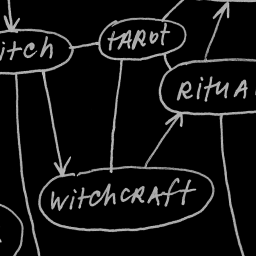 itch
tARot
RituA
witchcRAft